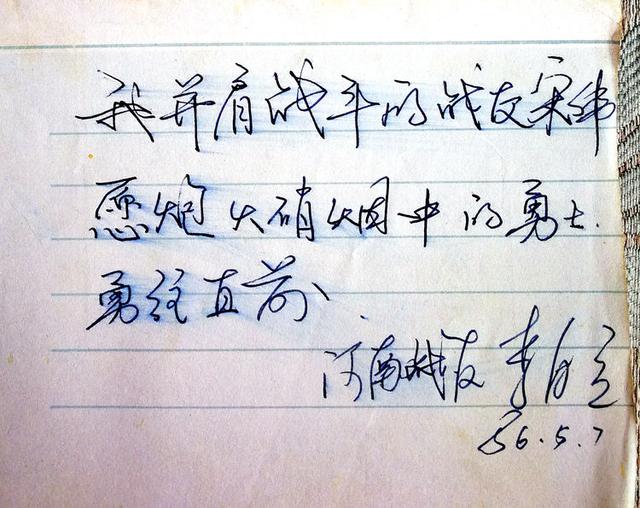 我并肩战斗的战友宋伟
愿炮火硝烟中的勇士.
勇往直前.
河南战友 李自立
86.5.7